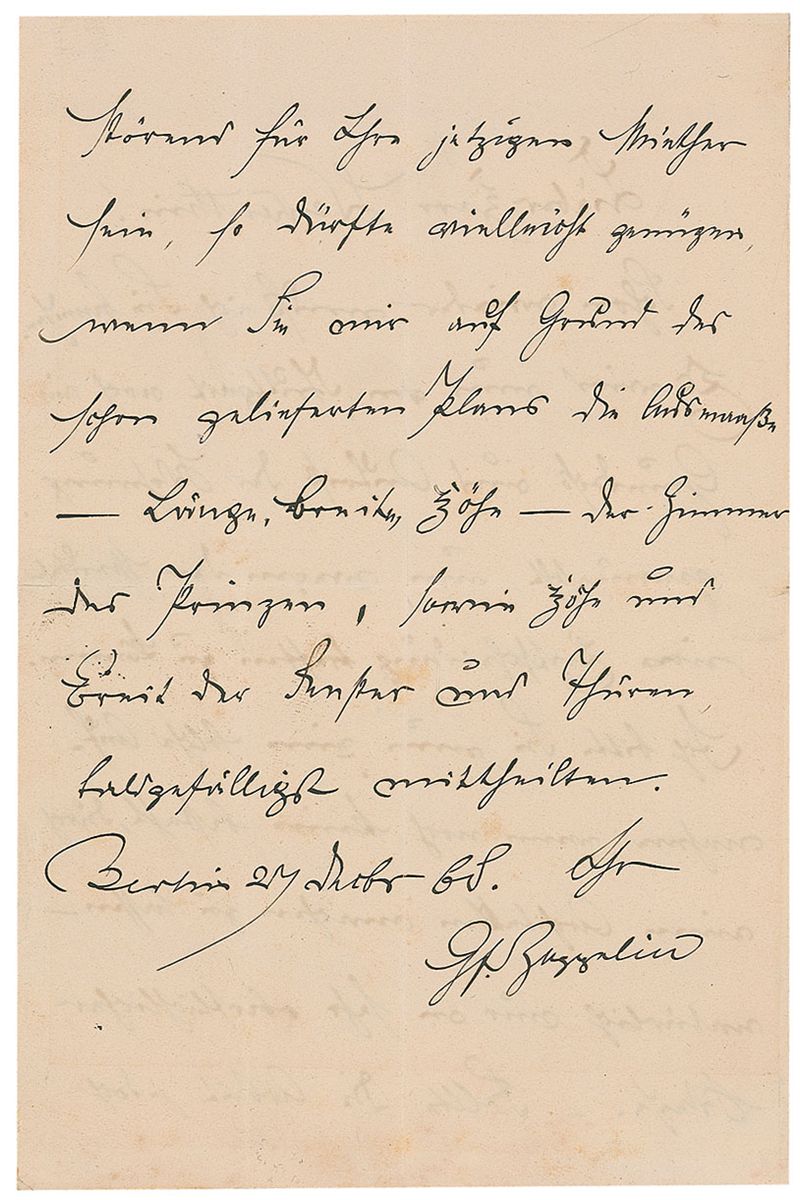 störend für Ihre jetzigen Miether
sein, so dürfte vielleicht genügen,
wenn Sie mir auf Grund des
schon gelieferten Plans die Ausmaaße
— Länge, Breite, Höhe — der Zimmer
des Prinzen, sowie Höhe und
Breit der Fenster und Thüren
baldgefälligst mittheilten.
Berlin 27 Decbr 68. Ihr
Gf. Zeppelin